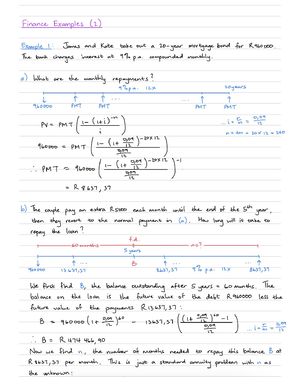 Finance Examples (2)
Example 1: James and Kate take out a 20-year mortgage bond for R960000.
The bank charges interest at 9% p.a. compounded monthly.
a) What are the monthly repayments?
9% p.a. 12x
20 years
960000 PMT PMT ... ... PMT PMT
PV = PMT [ (1 - (1+i)^-n) / i ]
... i = 0,09/12
n = 20 × 12 = 240
960000 = PMT ( (1 - (1 + 0,09/12)^-20×12) / (0,09/12) )
∴ PMT = 960000 ( (1 - (1 + 0,09/12)^-20×12) / (0,09/12) )^-1
= R 8637,37
b) The couple pay an extra R5000 each month until the end of the 5th year,
then they revert to the normal payment in (a). How long will it take to
repay the loan?
60 months
5 years
n = ?
960000 13637,37 ... 13637,37 B 8637,37 ... 9% p.a. 12x 8637,37
We first find B, the balance outstanding after 5 years = 60 months. The
balance on the loan is the future value of the debt R960000 less the
future value of the payments R13637,37:
B = 960000 (1 + 0,09/12)^60 - 13637,37 ( ((1 + 0,09/12)^60 - 1) / (0,09/12) )
... i = 0,09/12
∴ B = R 474 466,90
Now we find n, the number of months needed to repay this balance B at
R8637,37 per month. This is just a standard annuity problem with n as
the unknown: